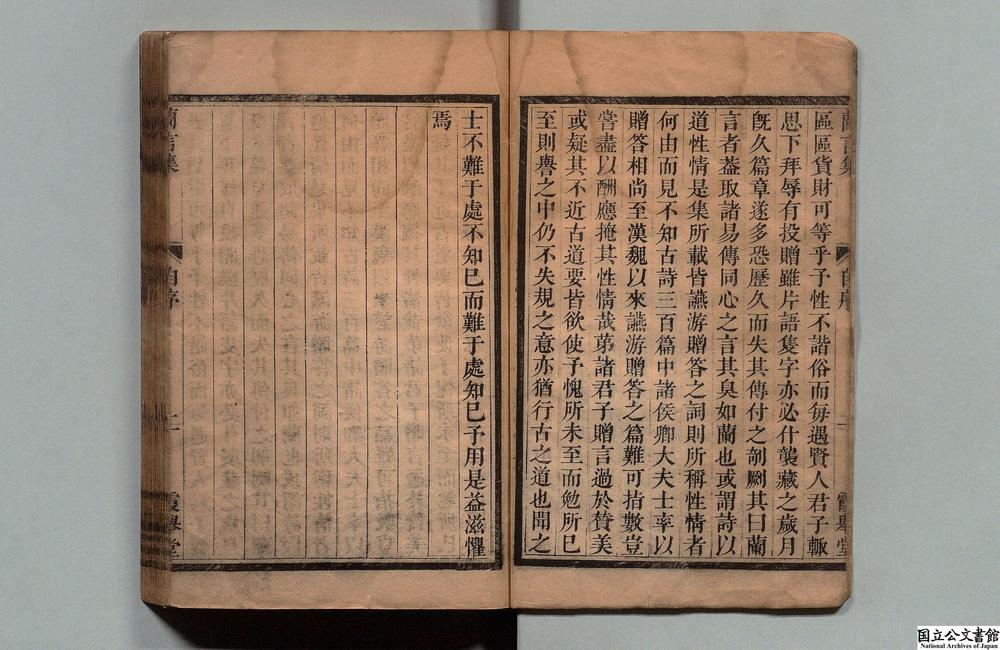 區區貨財可等乎予性不諧俗而每遇賢人君子輙
思下拜辱有投贈雖片語隻字亦必什襲藏之歲月
旣久篇章遂多恐歷久而失其傳付之剞劂其曰蘭
言者葢取諸易傳同心之言其臭如蘭也或謂詩以
道性情是集所載皆讌游贈答之詞則所稱性情者
何由而見不知古詩三百篇中諸侯卿大夫士率以
贈答相尚至漢魏以來讌游贈答之篇難可指數豈
甞盡以酬應掩其性情哉苐諸君子贈言過於赞美
或疑其不近古道要皆欲使予愧所未至而勉所已
至則譽之中仍不失規之意亦猶行古之道也聞之
蘭言集
自序
一
霞舉堂
士不難于處不知已而難于處知已予用是益滋懼
焉
蘭言集
自序
二
霞舉堂
国立公文書館
National Archives of Japan